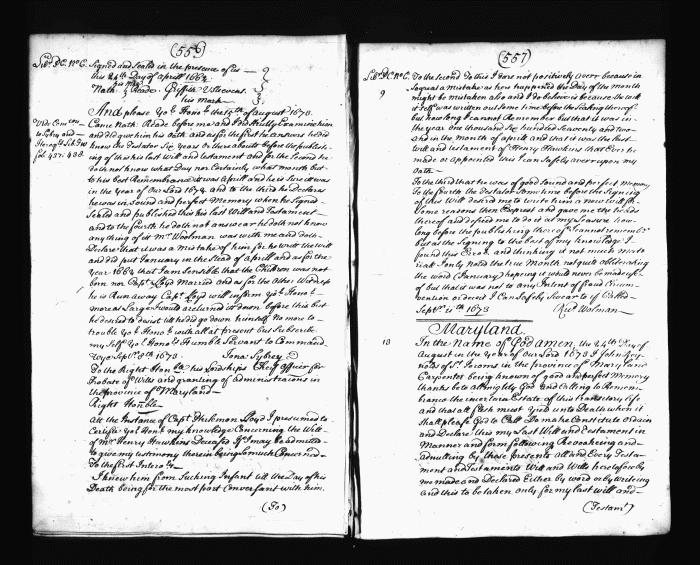 (556)
Signed and sealed in the presence of us
this 24th Day of Aprill 1664
his mark
Nath: Reade. Griffith Stevens.
his mark
And please yor Honor the 15th of August 1673.
Came Nath: Reade before me and I did strictly Examine him
and did give him his Oath and as for the first he answers he did
know the Testator Six Years or there abouts before the publish-
ing of this his last Will and testament and for the Second he
doth not know what Day nor Certainly what month but
to his best Remembrance it was Aprill and he is Sure it was
in the year of our Lord 1672 and to the third he Declares
he was in Sound and perfect Memory when he Signed
Sealed and published this his last Will and Testament
and to the fourth he doth not answear he doth not know
anything of it Mr. Woolman was with me and doth
Declare that it was a Mistake of him for he writ the will
and did put January in the Stead of Aprill and as for the
year 1664 that I am Sensible that the Children was not
born nor Capt. Loyd Married and as for the other Witness
he is Run away Capt. Loyd will inform yor Honor
more at Large I would a returned it down before this but
he desired to desist till he did go down himself No more to
trouble yor Honor withall at present but Subscribe
my Self yor Honors Humble Servant to Command
Wye Septr. 9th 1673. Jona: Sybrey
To the Right Honble his Lordships Cheif Officer for
Probate of Wills and granting of administracions in
the Province of Maryland
Right Honble
Att the Instance of Capt. Philemon Loyd I presumed to
Certifie yor Honor my knowledge Concerning the Will
of Mr. Henry Hawkins Deceased If I may be admitted
to give my testimony therein being so much Concerned
To the first Interro
I knew him from Sucking Infant till the Day of his
Death being for the most part Conversant with him.
(To)
(557)
9
To the Second to this I dare not positively averr because in
so great a mistake as here happened this Day of the month
might be mistaken also and I do beleive because the will
it Self was written sometime before the Sealing thereof
but how long I cannot Remember but that it was in
the year one thousand Six hundred Seaventy and two
and in the Month of Aprill and that it was the last
Will and testament of Henry Hawkins that Ever he
made or appointed this I can Safely averr upon my
Oath
To the third that he was of good Sound and perfect Memory
To the fourth the Testator Sometime before the Signing
of this Will desired me to write him a new will for
Some reasons then Exprest and gave me the heads
thereof and desired me to do it at my Leasure how
long before the publishing thereof I cannot remember
but at the Signing to the best of my knowledge I
found this Error and thinking it not much mate-
riall I only Noted the true Month not quite obliterating
the word (January) hopeing it would never be made use
of but that it was not to any Intent of fraud Circum-
vention or deceit I Can Safely Swear to if Called
Septr. 1673 Richd. Wolman
Maryland.
13
In the Name of God amen, the 24th Day of
August in the Year of our Lord 1673 I John Rey-
nolds of St. Jeroms in the province of Maryland
Carpenter being Known of good and perfect Memory
thanks be to almighty God and calling to Remem-
brance the incertain Estate of this transitory life
and that all flesh must Yield unto Death when it
shall please God to Call Do make Constitute Ordain
and Declare this my last Will and Testament in
Manner and form following Revoakeing and
adnulling by these presents all and Every Testa-
ment and Testaments Will and Wills heretofore by
me made and Declared Either by word or by writeing
and this to be taken only for my last will and
(Testamt)